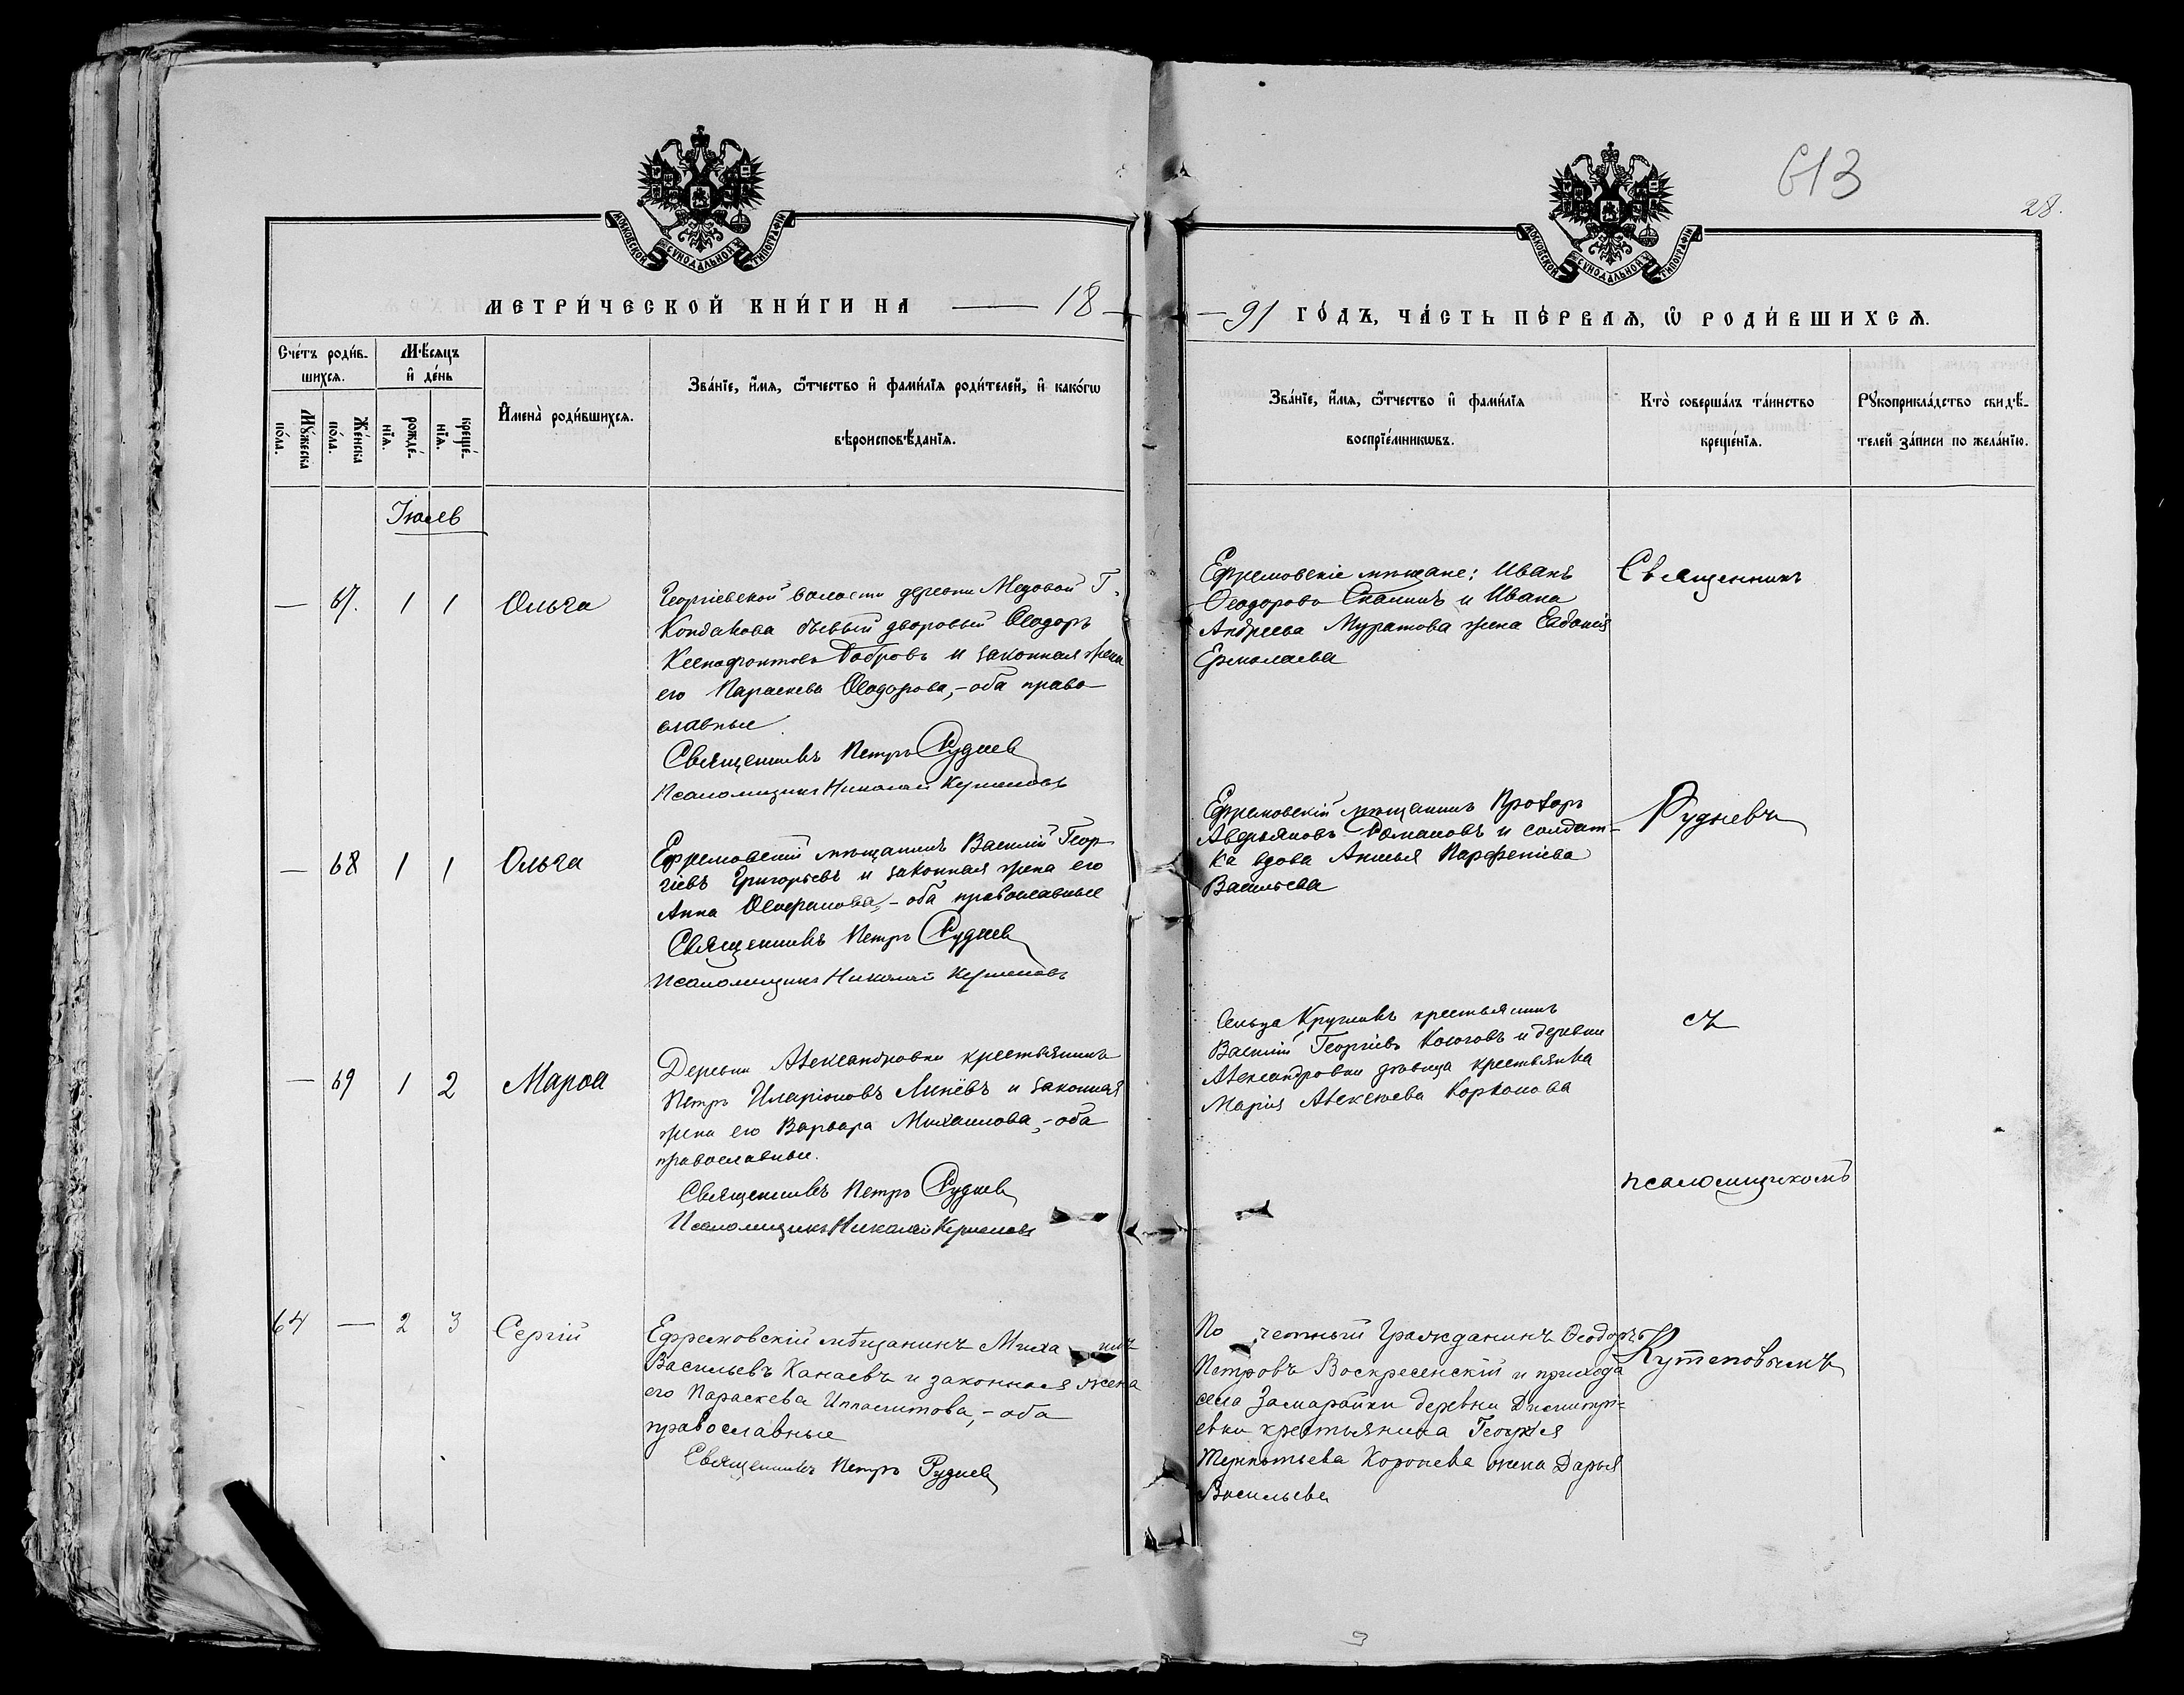 613
28.
МОСКОВСКОЙ СѴНОДАЛЬНОЙ ТИПОГРАФІИ
МОСКОВСКОЙ СѴНОДАЛЬНОЙ ТИПОГРАФІИ
МЕТРИ́ЧЕСКОЙ КНИ́ГИ НА — 18 —
— 91 ГО́ДЪ, ЧА́СТЬ ПЕ́РВАѦ, Ѡ҆ РОДИ́ВШИХСѦ.
Сче́тъ роди́в-
шихсѧ.
Мꙋ́жеска
по́ла.
Же́нска
по́ла.
М́ѣсѧцъ
и҆ де́нь
рожде́-
нїѧ.
креще́-
нїѧ.
И҆мена̀ роди́вшихсѧ.
Зва́нїе, и҆́мѧ, ѻ҆́тчество и҆ фами́лїѧ роди́телей, и҆ како́гѡ
вѣроисповѣ́данїѧ.
Зва́нїе, и҆́мѧ, ѻ҆́тчество и҆ фами́лїѧ
воспрїе́мникѡвъ.
Кто̀ соверша́лъ та́инство
креще́нїѧ.
Рꙋкоприкла́дство свидѣ́-
телей за́писи по жела́нїю.
Іюль
— 67. 1 1 Ольга
Георгіевской волости деревни Медовой Г.
Кондакова бывшій дворовый Ѳеодоръ
Ксенофонтовъ Бобровъ и законная жена
его Параскева Ѳеодорова,- оба право-
славные
Священникъ Петръ Рудневъ
Псаломщикъ Николай Кутеповъ
Ефремовскіе мѣщане: Иванъ
Ѳеодоровъ и Ивана
Андреева Муратова жена Евдокія
Ермолаева
Священникъ
— 68 1 1 Ольга
Ефремовскій мѣщанинъ Василій Геор-
гіевъ Григорьевъ и законная жена его
Анна - оба православные
Священникъ Петръ Рудневъ
Псаломщикъ Николай Кутеповъ
Ефремовскій мѣщанинъ Прохоръ
Авдѣяновъ Романовъ и солдат-
ка вдова Парфеніева
Васильева
Рудневъ
— 69 1 2 Марѳа
Деревни Александровки крестьянинъ
Петръ Иларіоновъ Линёвъ и законная
жена его Варвара Михаилова,- оба
православные.
Священникъ Петръ Рудневъ
Псаломщикъ Николай Кутеповъ
Сельца крестьянинъ
Василій Георгіевъ и деревни
Александровки дѣвица крестьянка
Марія Алексѣева
съ
псаломщикомъ
64 — 2 3 Сергій
Ефремовскій мѣщанинъ Миха илъ
Васильевъ Канаевъ и законная жена
его Параскева Ипполитова,- оба
православные
Священникъ Петръ Рудневъ
По четный Гражданинъ Ѳеодоръ
Петровъ Воскресенскій и прихода
села Замарайки деревни Димитрі=
евки крестьянина Георгія
Терентьева жена Дарья
Васильева
Кутеповымъ